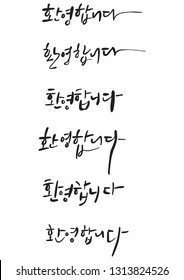 환영합니다
환영합니다
환영합니다
환영합니다
환영합니다
환영합니다
www.shutterstock.com · 1313824526